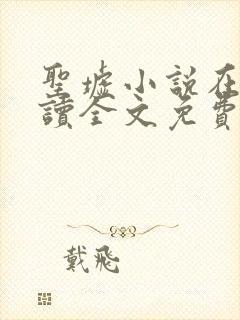 聖墟小說在
讀全文免費
戴飛